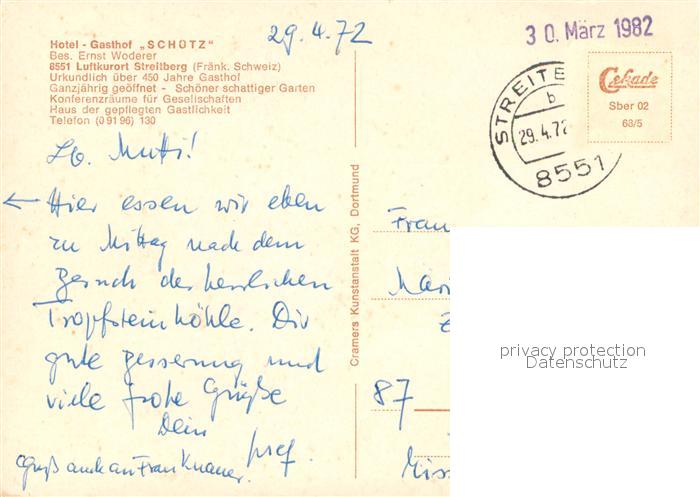 Hotel - Gasthof „SCHÜTZ"
Bes. Ernst Woderer
8551 Luftkurort Streitberg (Fränk. Schweiz)
Urkundlich über 450 Jahre Gasthof
Ganzjährig geöffnet - Schöner schattiger Garten
Konferenzräume für Gesellschaften
Haus der gepflegten Gastlichkeit
Telefon (0 91 96) 130
29.4.72
30. März 1982
STREITBE
b
29.4.72
8551
Cekade
Sber 02
63/5
Lb. Mutti!
← Hier essen wir eben
zu Mittag nach dem
Besuch der herrlichen
Tropfsteinhöhle. Dir
gute Besserung und
viele frohe Grüße
Dein
Josef.
Gruß auch an Frau Knauer.
Cramers Kunstanstalt KG, Dortmund
Frau
Mari
87
privacy protection
Datenschutz